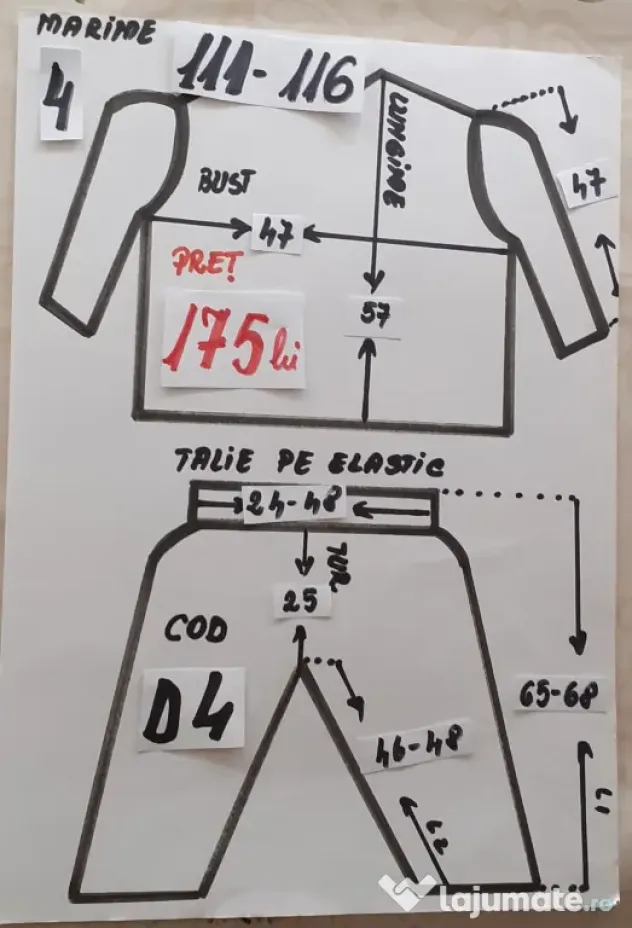 MARIME
4
111-116
LUNGIME
BUST
47
47
PREȚ
175 lei
57
TALIE PE ELASTIC
24-48
TUR
25
COD
D4
65-68
46-48
L1
L2
Lajumate.ro